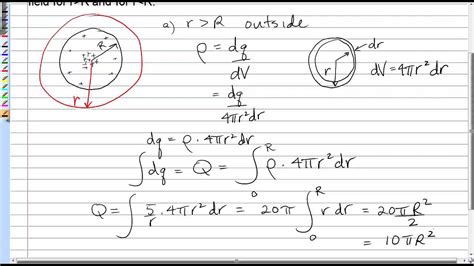 field for r>R and for r<R.
a) r > R outside
ρ = dq/dV
= dq/4πr²dr
dr
dV = 4πr²dr
R
r
dq = ρ · 4πr²dr
∫dq = Q = ∫₀ᴿ ρ · 4πr²dr
Q = ∫ 5/r · 4πr²dr = 20π ∫₀ᴿ r dr = 20πR²/2
= 10πR²